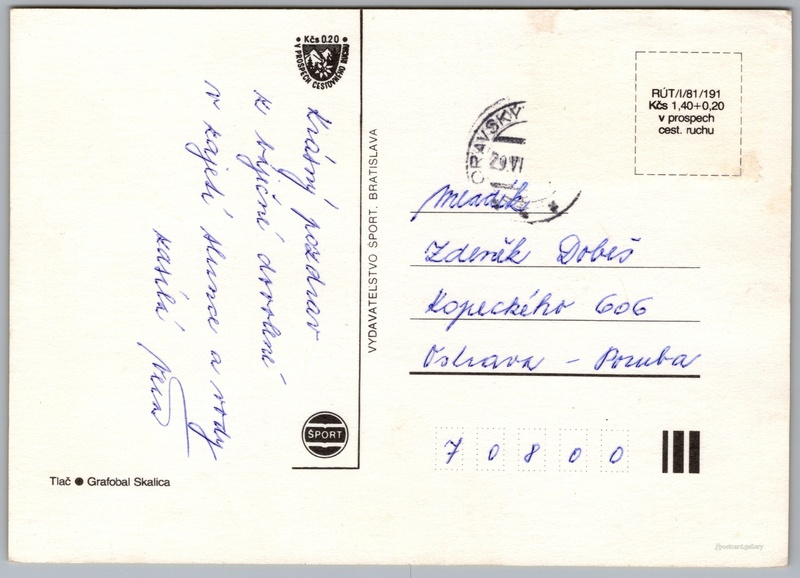 Kčs 0.20
V PROSPECH CESTOVNÉHO RUCHU
Krásný pozdrav
z báječné dovolené
v zajetí slunce a vody
zasílá Věra
ŠPORT
Tlač ● Grafobal Skalica
VYDAVATEĽSTVO ŠPORT, BRATISLAVA
RÚT/I/81/191
Kčs 1,40+0,20
v prospech
cest. ruchu
ORAVSKÝ
29.VI
Mladík
Zdeněk Dobeš
Kopeckého 606
Ostrava - Poruba
70800
postcard.gallery